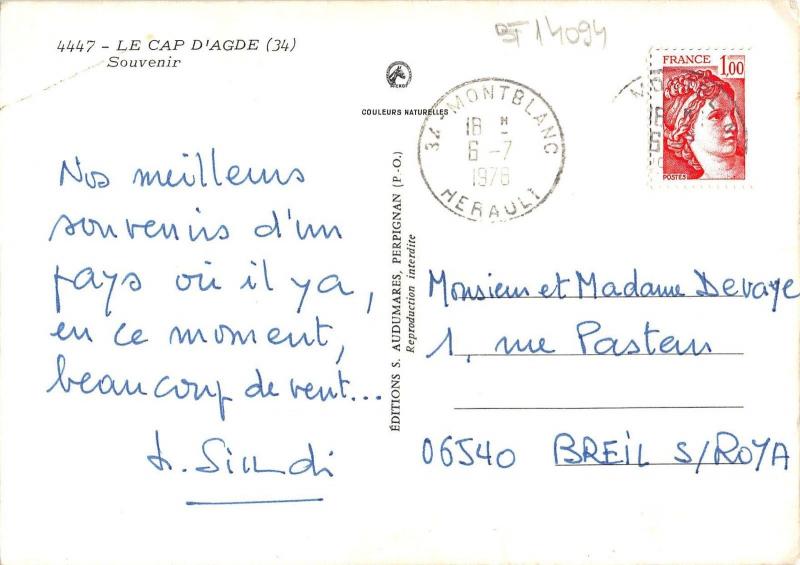 BF 14094
4447 - LE CAP D'AGDE (34)
Souvenir
COULEURS NATURELLES
34 - MONTBLANC
18 H
6 - 7
1978
HERAULT
FRANCE 1,00
POSTES
Nos meilleurs
souvenirs d'un
pays où il y a,
en ce moment,
beaucoup de vent...
ÉDITIONS S. AUDUMARES, PERPIGNAN (P.-O.)
Reproduction interdite
Monsieur et Madame Devaye
1, rue Pasteur
06540 BREIL S/ROYA